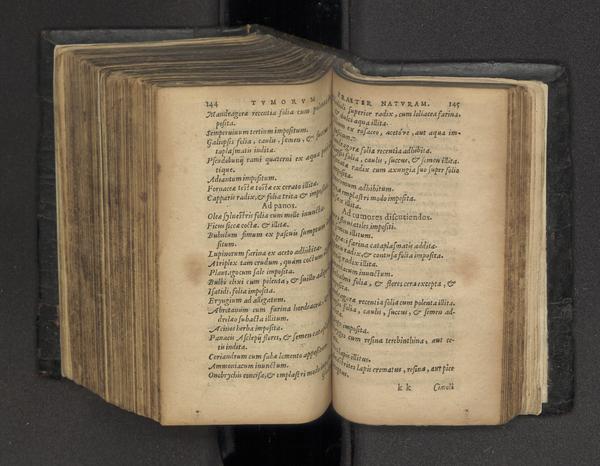 144 TVMORVM
Mandragoræ recentia folia cum polenta
posita.
Semperuiuum tertium impositum.
Galiopsis folia, caulis, semen, & succus
taplasmatis indita.
Pseudobunij rami quaterni ex aqua
tique.
Adiantum impositum.
Fornaceæ testæ tostæ ex cerato illita.
Capparis radix, & folia trita & imposita
Ad panos.
Oleæ syluestris folia cum melle inuncta.
Ficus siccæ coctæ & illitæ.
Bubulum fimum ex pascuis sumptum
situm.
Lupinorum farina ex aceto adhibita.
Atriplex tam crudum, quàm coctum
Plantago cum sale imposita.
Bulbi elixi cum polenta, & suillo adipe
Isatidis folia imposita.
Eryngium ad allegatum.
Abrotanum cum farina hordeacea,
subacta illitum.
Acinos herba imposita.
Panacis Asclepij flores, & semen
tis inditæ.
Coriandrum cum fabæ lomento
Ammoniacum inunctum.
Onobrychis concisa, & emplastri modo
PRAETER NATVRAM. 145
superior radix, cum loliacea farina,
& dulci aqua illita.
ex rosaceo, aceto'ue, aut aqua im-
folia recentia adhibita.
folia, caulis, succus, & semen illita.
radix cum axungia suo super folio
adhibitum.
emplastri modo imposita.
illita.
Ad tumores discutiendos.
fluuiatiles impositi.
illitum.
farina cataplasmatis addita.
radix, & contusa folia imposita.
radix illita.
inunctum.
folia, & flores cera excepta, &
recentia folia cum polenta illita.
folia, caulis, succus, & semen ad-
imposita.
cum resina terebinthina, aut ce-
lapis illitus.
lapis crematus, resina, aut pice
kk Cimoli